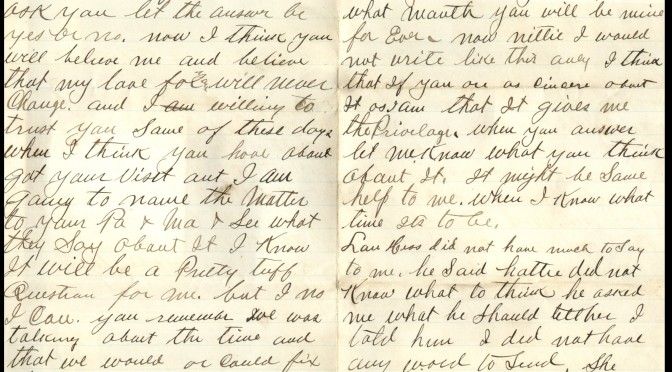 ask you let the answer be
yes or no. now I think you
will believe me and believe
that my love for you will never
Change. and I am willing to
trust you Some of these days
when I think you have about
got your Visit out I am
going to name the Matter
to your Pa & Ma & See what
they Say about It I Know
It will be a Pretty tuff
Question for me. but I no
I Can. you remember we was
talking about the time and
that we would or Could fix
what Month you will be mine
for Ever. now nittie I would
not write like this only I think
that If you are as sincere about
It as I am that It gives me
the Privilage. when you answer
let me Know what you think
about It. It might be Some
help to me. when I Know what
time its to be.
Hess did not have much to Say
to me. he Said hattie did not
Know what to think he asked
me what he should tell her I
told him I did not have
any word to Send. She